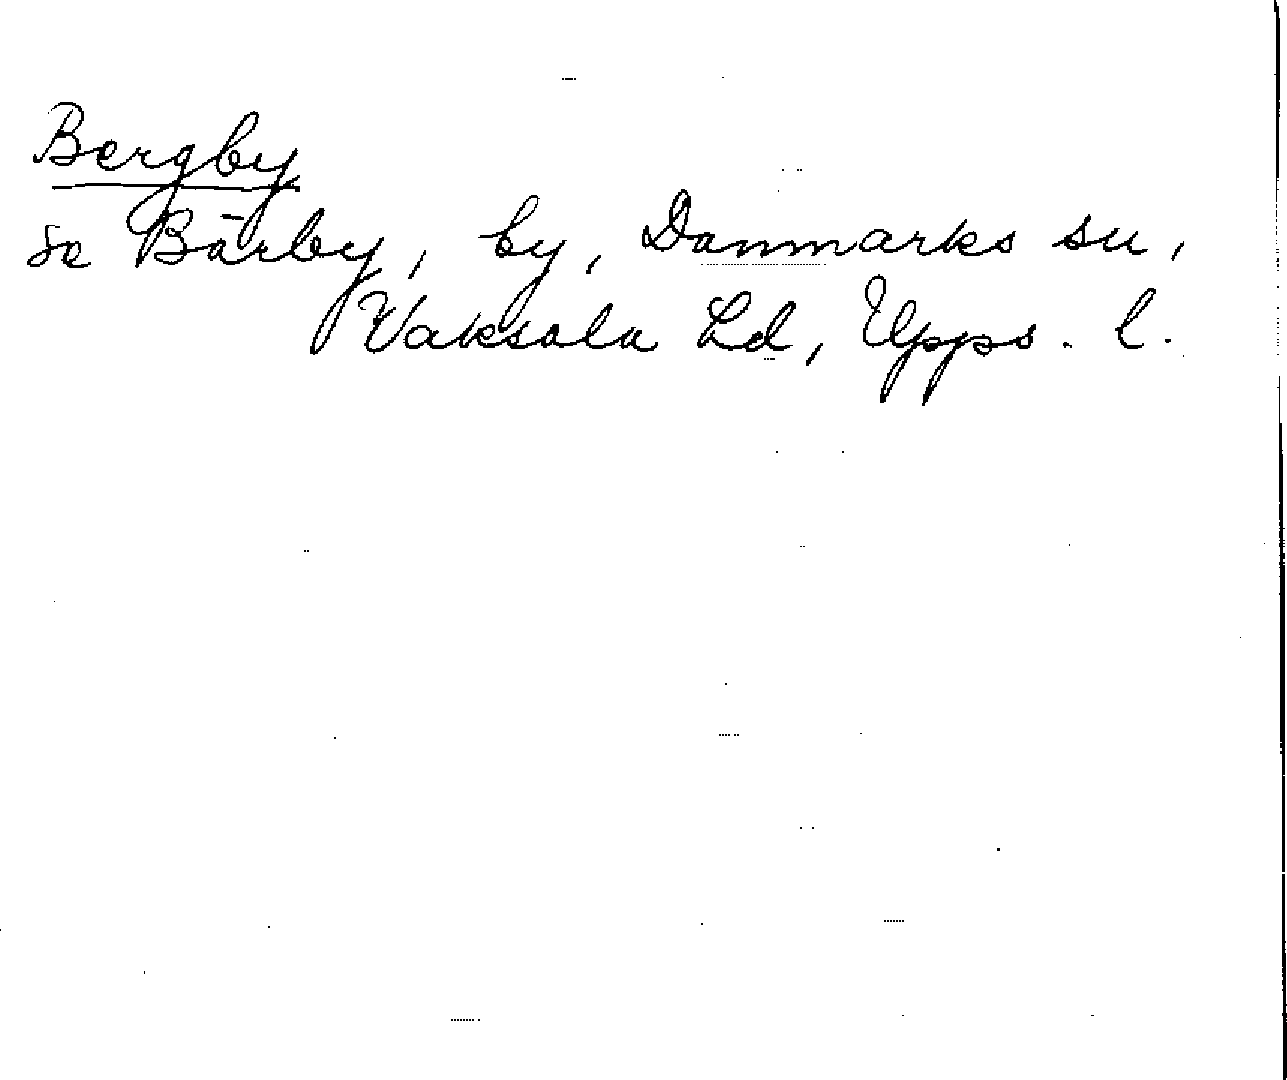 Bergby
se Bärby, by, Danmarks sn,
Vaksala hd, Upps. l.